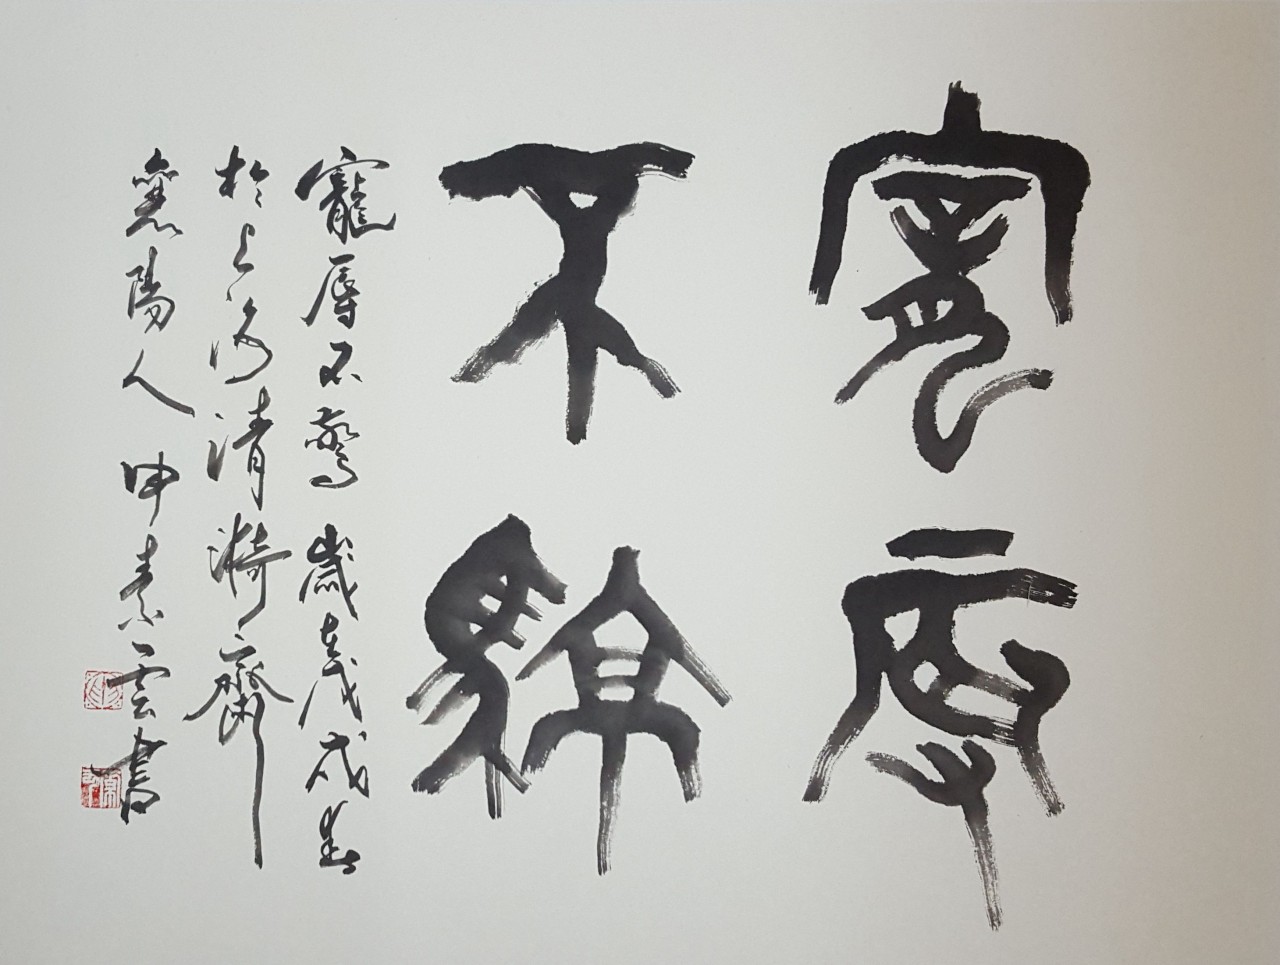 寵辱
不驚
寵辱不驚 歲在戊戌春
於上海清漪齋
襄陽人 申素雲書